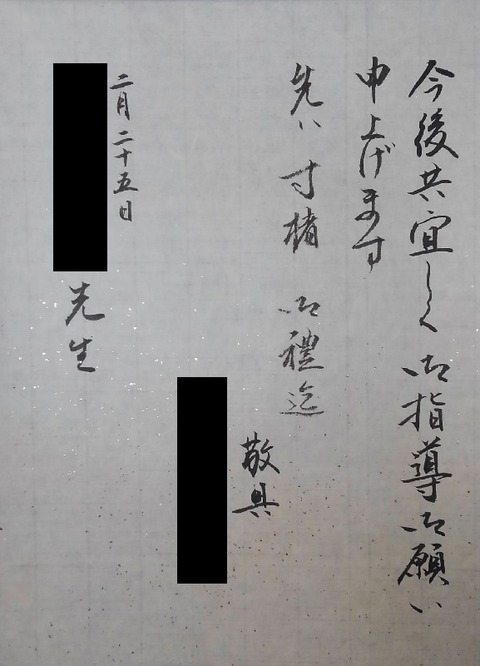 今後共宜しく御指導御願い
申上げます
先ハ寸楮 御禮迄
敬具
二月二十五日
先生